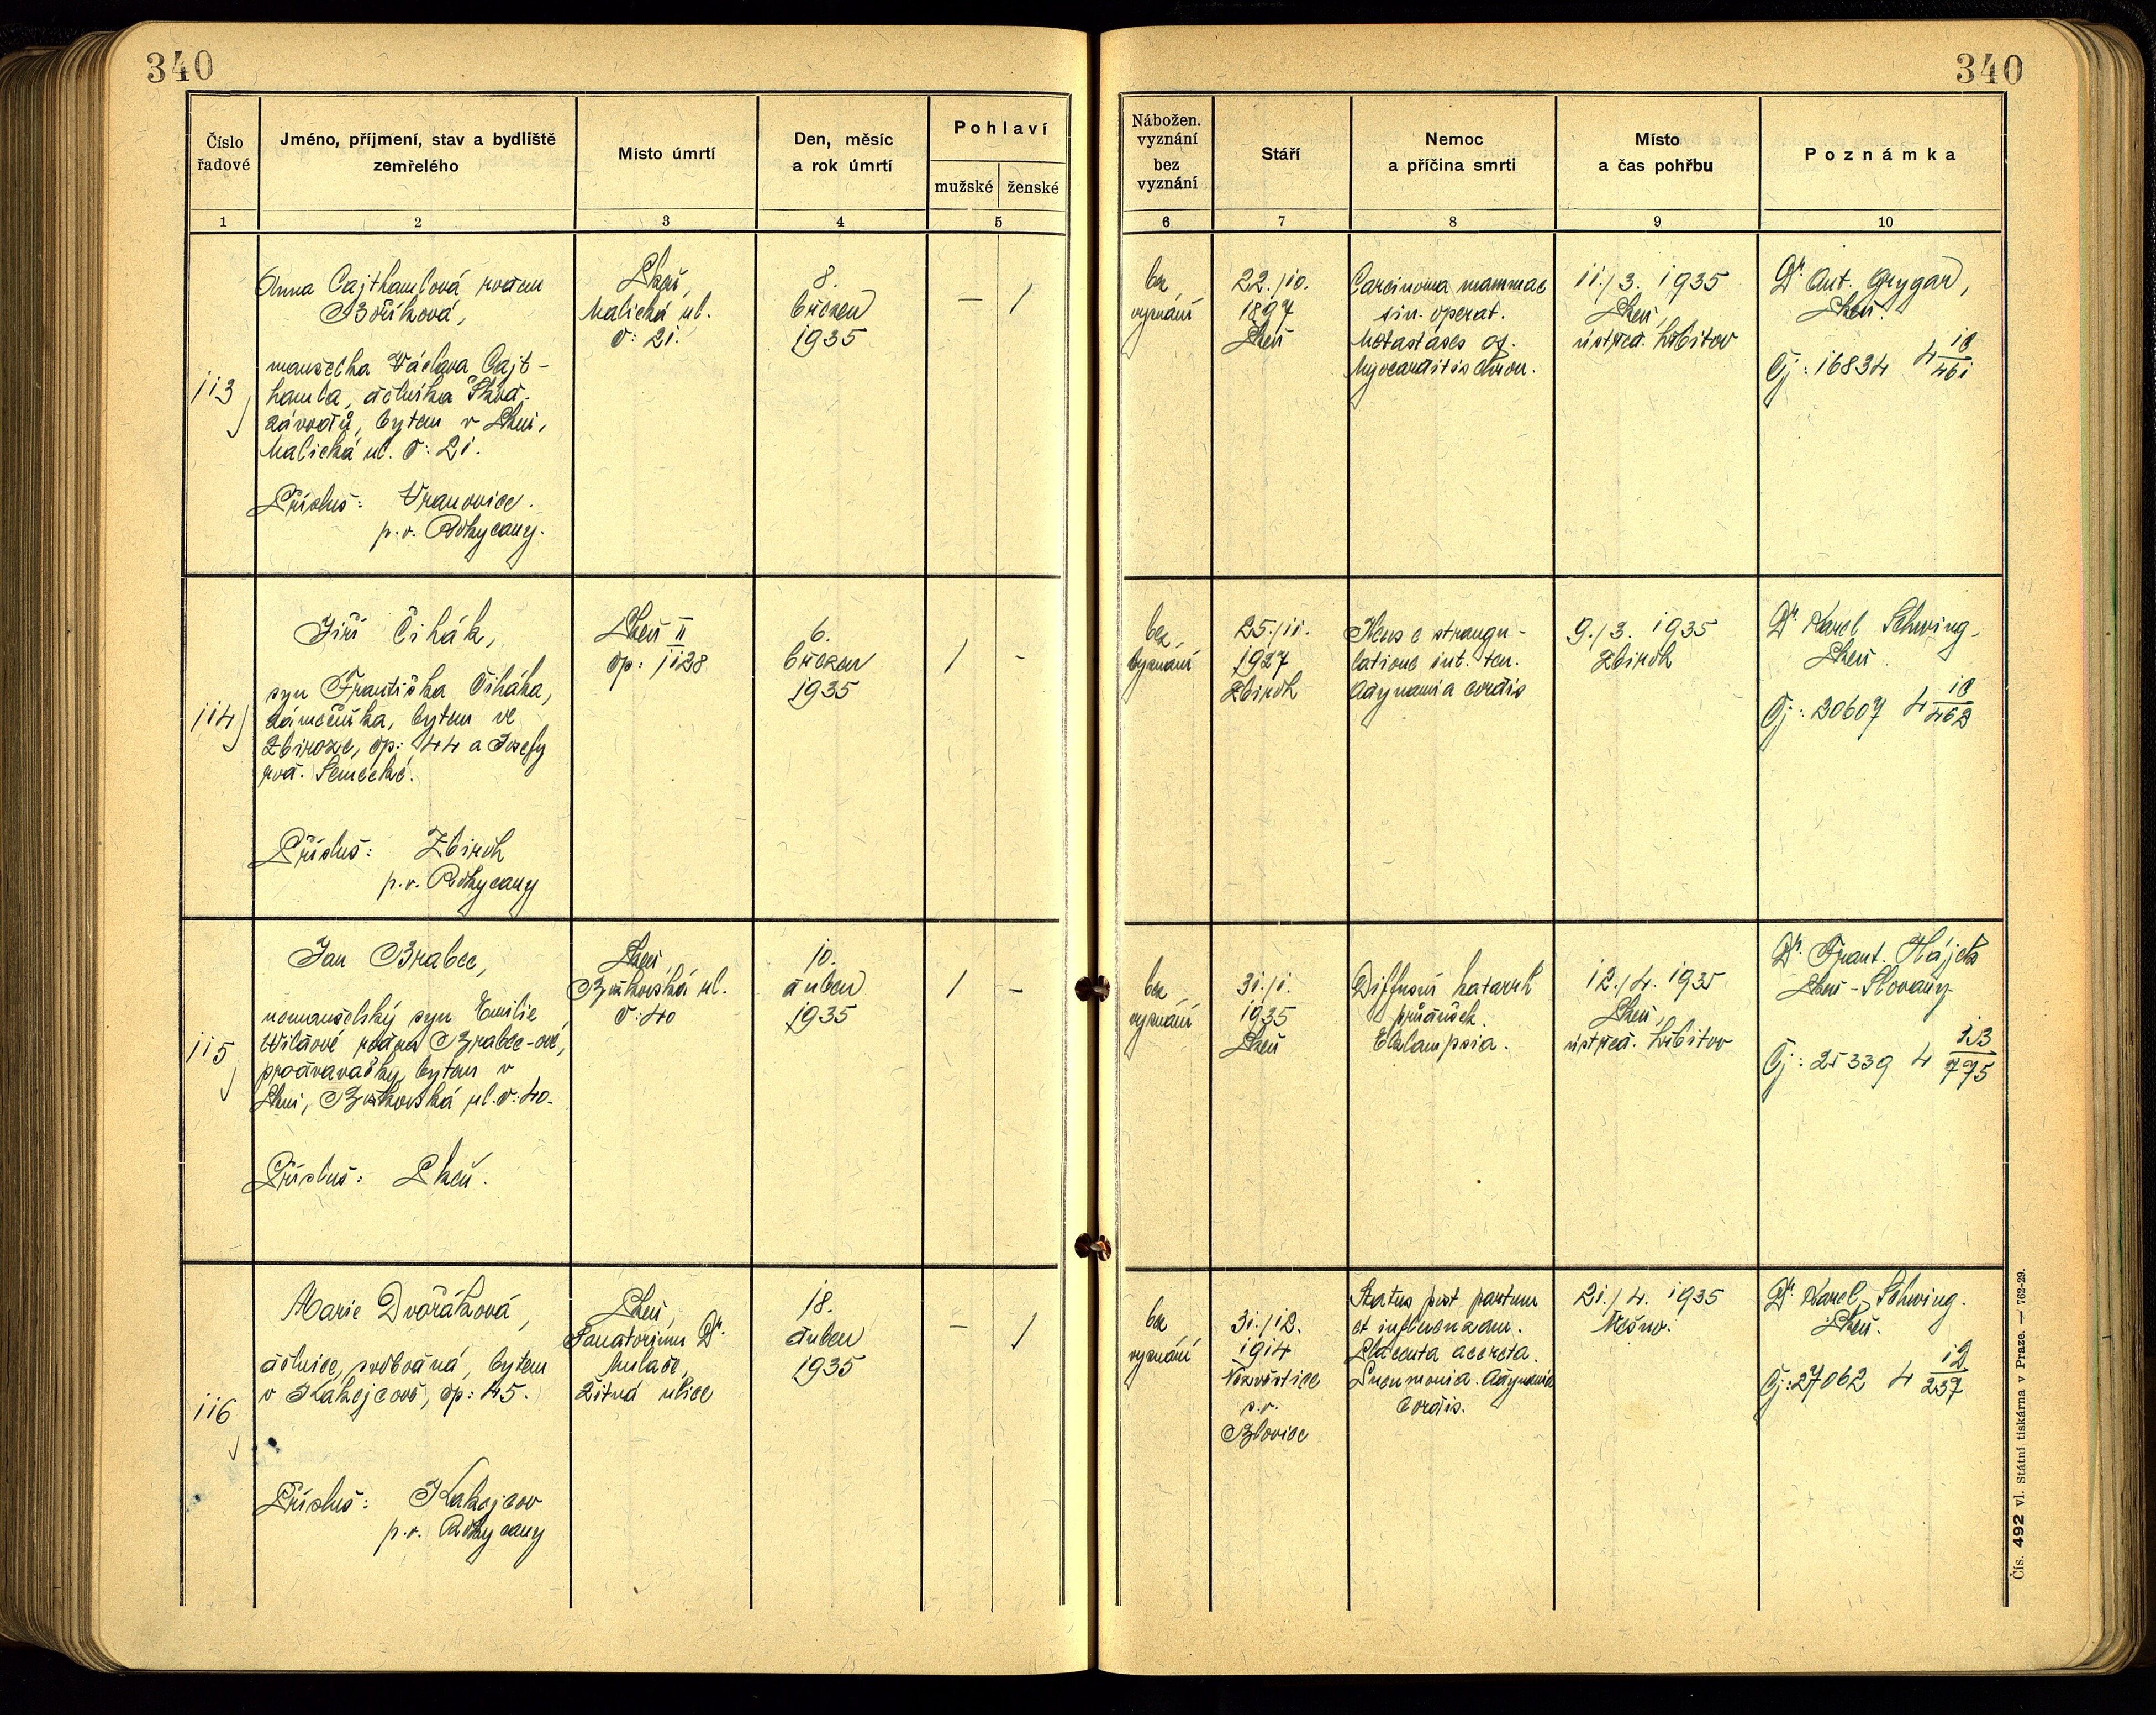 340
340
Číslo řadové
Jméno, příjmení, stav a bydliště zemřelého
Místo úmrtí
Den, měsíc a rok úmrtí
Pohlaví
mužské
ženské
Nábožen. vyznání bez vyznání
Stáří
Nemoc a příčina smrti
Místo a čas pohřbu
Poznámka
1 2 3 4 5 6 7 8 9 10
113
Anna Cajthamlová rozen
Bőříková,
manželka Václava Cajt-
hamla, dělníka Škod.
závodů, bytem v Plzni,
Malická ul. č: 21.
Přísluš: Vranovice.
p. o. Rokycany.
Plzeň,
Malická ul.
č: 21.
8.
březen
1935
— /
bez
vyznání
22./10.
1897
Plzeň
Carcinoma mammae
sin. operat.
Metastases
Myocarditis chron.
11./3. 1935
Plzeň,
ústřed. hřbitov
Dr. Ant. Grygar,
Plzeň.
Čj: 16834 4 10/461
114
Jiří Čihák,
syn Františka Čiháka,
zámečníka, bytem ve
Zbiroze, čp: 44 a Josefy
roz.
Přísluš: Zbiroh
p. o. Rokycany
Plzeň II
čp: 1128
6.
březen
1935
/ -
bez
vyznání
25./11.
1927
Zbiroh
Ileus e strangu-
latione int. ten.
Adynamia cordis
9./3. 1935
Zbiroh
Dr. Karel Schwing,
Plzeň.
Čj: 20607 4 10/462
115
Jan Brabec,
nemanželský syn Emilie
rozen Brabec-ové,
prodavačky, bytem v
Plzni, Božkovská ul. č: 40.
Přísluš: Plzeň.
Plzeň,
Božkovská ul.
č: 40
10.
duben
1935
/ -
bez
vyznání
31./1.
1935
Plzeň
Diffusní katarrh
průdušek.
Eklampsia.
12./4. 1935
Plzeň,
ústřed. hřbitov
Dr. Frant. Hájek
Plzeň-Slovany
Čj: 25339 4 13/775
116
Marie Dvořáková,
dělnice, svobodná, bytem
v Kakejcově, čp: 45.
Přísluš: Kakejcov
p. o. Rokycany
Plzeň,
Sanatorium Dr.
Mulače,
Žitná ulice
18.
duben
1935
— /
bez
vyznání
31./12.
1914
Nezvěstice
p. o.
Blovice
Status post partum
et influenzam.
Placenta accreta.
Pneumonia. Adynamia
cordis.
21./4. 1935
Mešno.
Dr. Karel Schwing.
Plzeň.
Čj: 27062 4 12/237
Čís. 492 vl. Státní tiskárna v Praze. — 762-29.